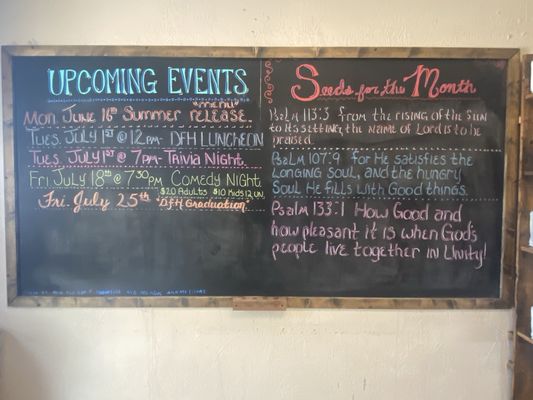 UPCOMING EVENTS
"menu"
Mon. June 16th Summer release.
Tues. July 1st @ 12pm - DFH LUNCHEON
Tues. July 1st @ 7pm - Trivia Night.
Fri July 18th @ 7:30pm Comedy Night.
$20 Adults $10 Kids 12 un.
Fri. July 25th "DFH Graduation"
Seeds for the Month
Psalm 113:3 from the rising of the sun
to its setting, the name of Lord is to be
praised.
Psalm 107:9 for He satisfies the
Longing soul, and the hungry
Soul He fills with Good things.
Psalm 133:1 How Good and
how pleasant it is when God's
people live together in Unity!